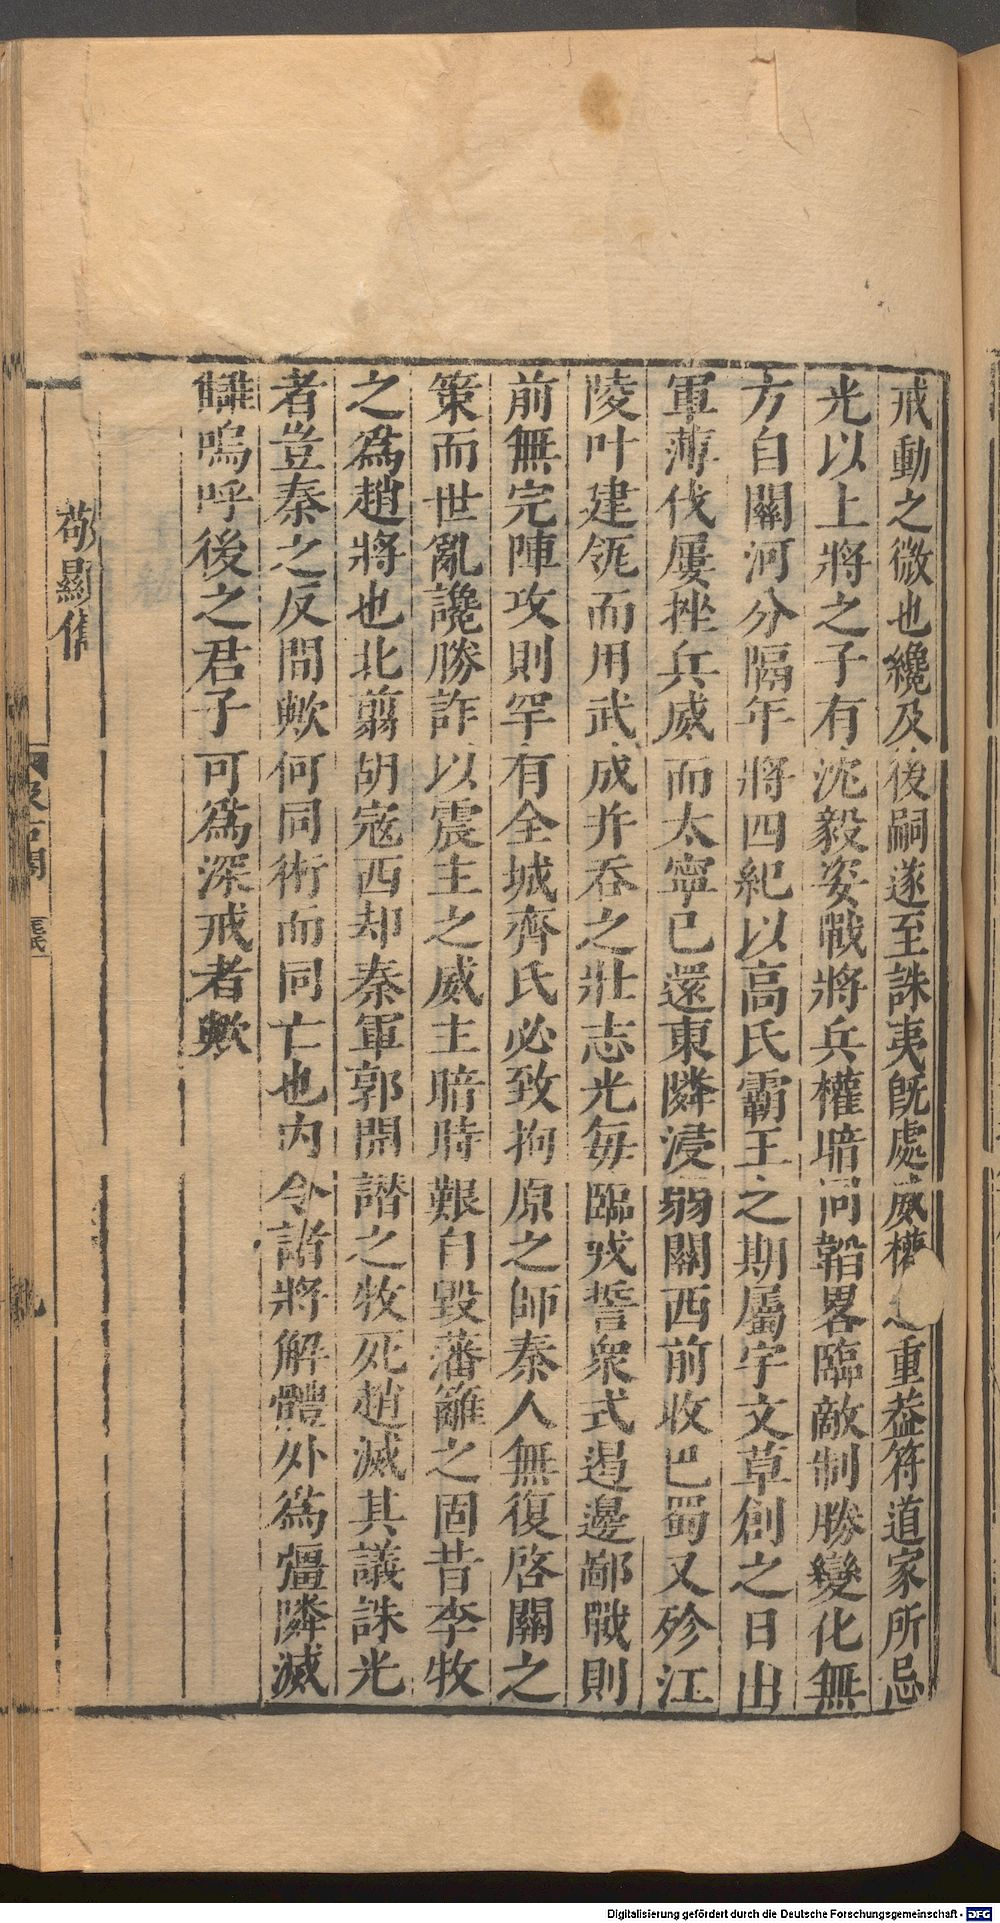 戒動之微也纔及後嗣遂至誅夷旣處威權之重葢符道家所忌
光以上將之子有沈毅姿戰將兵權暗同韜畧臨敵制勝變化無
方自關河分隔年將四紀以高氏霸王之期屬宇文草創之日出
軍薄伐屢挫兵威而太寧已還東隣浸弱關西前收巴蜀又殄江
陵叶建瓴而用武成幷吞之壯志光每臨戎誓衆式遏邊鄙戰則
前無完陣攻則罕有全城齊氏必致拘原之師秦人無復啓關之
策而世亂讒勝詐以震主之威主暗時艱自毀藩籬之固昔李牧
之為趙將也北翦胡寇西却秦軍郭開譖之牧死趙滅其議誅光
者豈秦之反間歟何同術而同亡也內令諸將解體外為彊隣滅
讎嗚呼後之君子可為深戒者歟
Digitalisierung gefördert durch die Deutsche Forschungsgemeinschaft - DFG